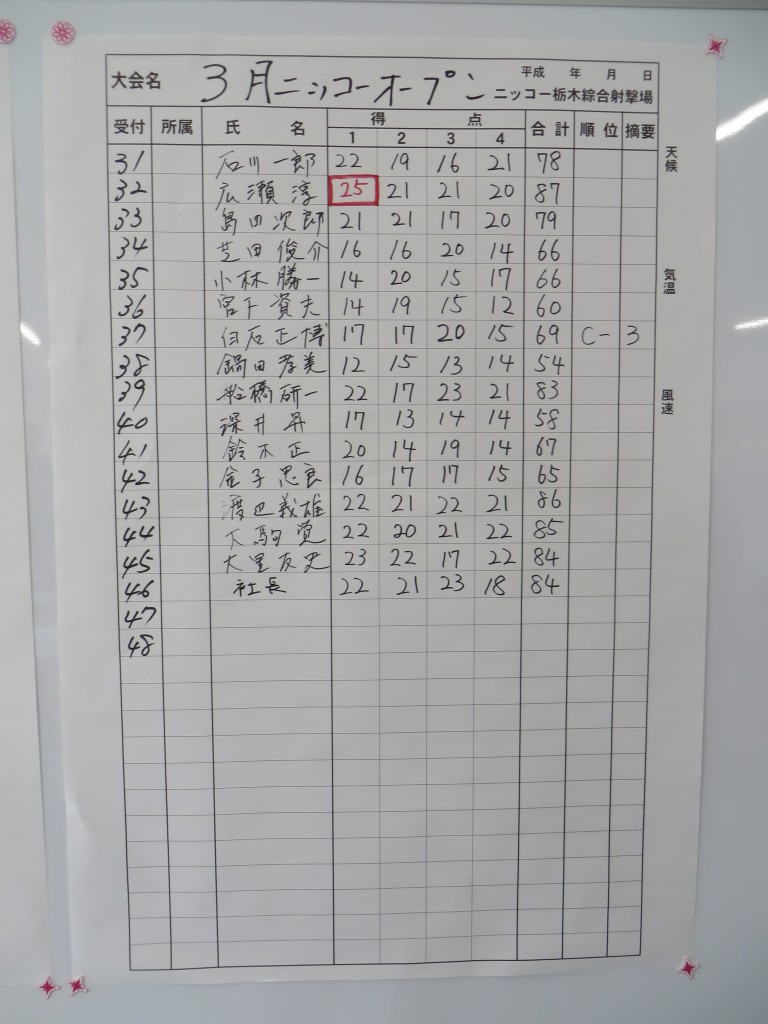 大会名 3月ニッコーオープン 平成 年 月 日
ニッコー栃木綜合射撃場
受付 所属 氏 名 得 点 合計 順位 摘要
1 2 3 4
31 石川一郎 22 19 16 21 78
32 広瀬淳 25 21 21 20 87
33 島田次郎 21 21 17 20 79
34 芝田俊介 16 16 20 14 66
35 小林勝一 14 20 15 17 66
36 宮下資夫 14 19 15 12 60
37 白石正博 17 17 20 15 69 C- 3
38 鍋田孝美 12 15 13 14 54
39 橋研一 22 17 23 21 83
40 深井昇 17 13 14 14 58
41 鈴木正 20 14 19 14 67
42 金子忠良 16 17 17 15 65
43 渡辺義雄 22 21 22 21 86
44 大駒覚 22 20 21 22 85
45 大里友史 23 22 17 22 84
46 社長 22 21 23 18 84
47
48
天候
気温
風速